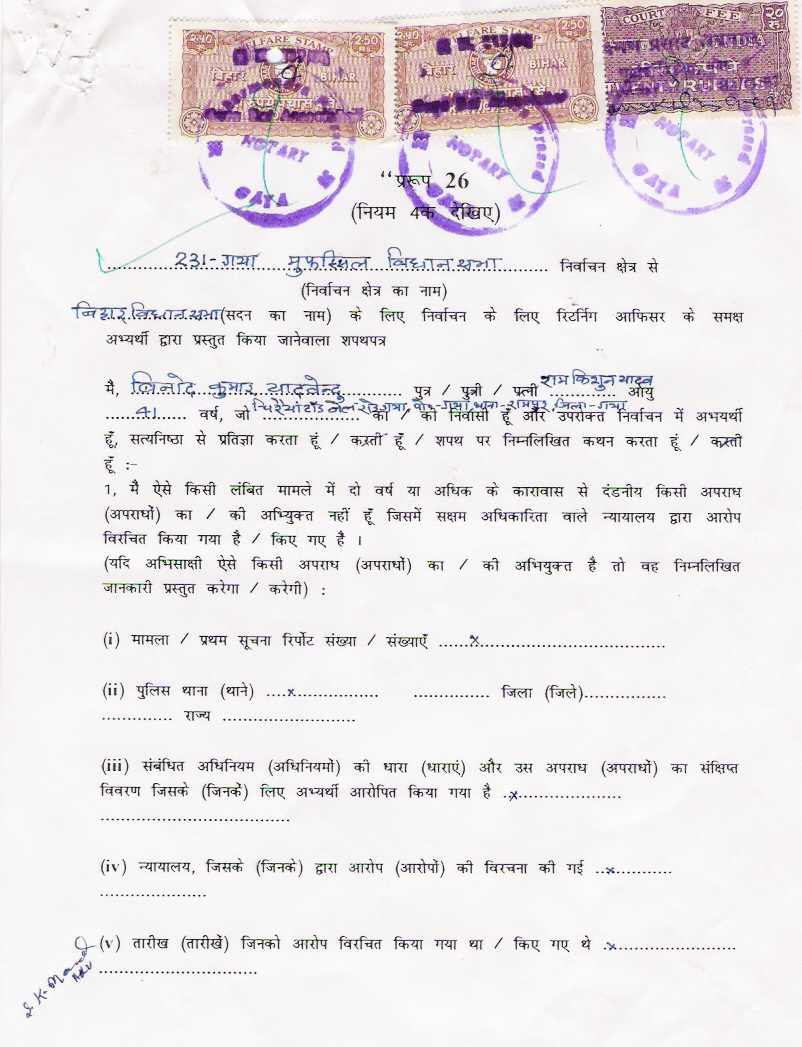 २.५० रु WELFARE STAMP 2.50 RS
बिहार BIHAR
२.५० रु WELFARE STAMP 2.50
बिहार BIHAR
COURT FEE २० रु
NOTARY
GAYA
NOTARY
GAYA
NOTARY
GAYA
“प्ररूप 26
(नियम 4क देखिए)
231-गया मुफस्सिल विधान सभा निर्वाचन क्षेत्र से
(निर्वाचन क्षेत्र का नाम)
बिहार विधान सभा (सदन का नाम) के लिए निर्वाचन के लिए रिटर्निग आफिसर के समक्ष
अभ्यर्थी द्वारा प्रस्तुत किया जानेवाला शपथपत्र
मै, विनोद कुमार यादवेन्दु पुत्र / पुत्री / पत्नी राम किशुन यादव आयु
41 वर्ष, जो चिरैयांटॉड जेल रोड गया, पो०-गया, थाना-रामपुर, जिला-गया का / की निवासी हूँ और उपरोक्त निर्वाचन में अभयर्थी
हूँ, सत्यनिष्ठा से प्रतिज्ञा करता हूं / करती हूँ / शपथ पर निम्नलिखित कथन करता हूं / करती
हूँ :-
1, मै ऐसे किसी लंबित मामले में दो वर्ष या अधिक के कारावास से दंडनीय किसी अपराध
(अपराधों) का / की अभ्यिुक्त नहीं हूँ जिसमें सक्षम अधिकारिता वाले न्यायालय द्वारा आरोप
विरचित किया गया है / किए गए है ।
(यदि अभिसाक्षी ऐसे किसी अपराध (अपराधों) का / की अभियुक्त है तो वह निम्नलिखित
जानकारी प्रस्तुत करेगा / करेगी) :
(i) मामला / प्रथम सूचना रिर्पोट संख्या / संख्याएँ ......x..............................
(ii) पुलिस थाना (थाने) ....x............... .............. जिला (जिले)...............
............. राज्य ........................
(iii) संबंधित अधिनियम (अधिनियमों) की धारा (धाराएं) और उस अपराध (अपराधों) का संक्षिप्त
विवरण जिसके (जिनके) लिए अभ्यर्थी आरोपित किया गया है .x...................
...................................
(iv) न्यायालय, जिसके (जिनके) द्वारा आरोप (आरोपों) की विरचना की गई ...x...........
....................
(v) तारीख (तारीखें) जिनको आरोप विरचित किया गया था / किए गए थे .x......................
.............................